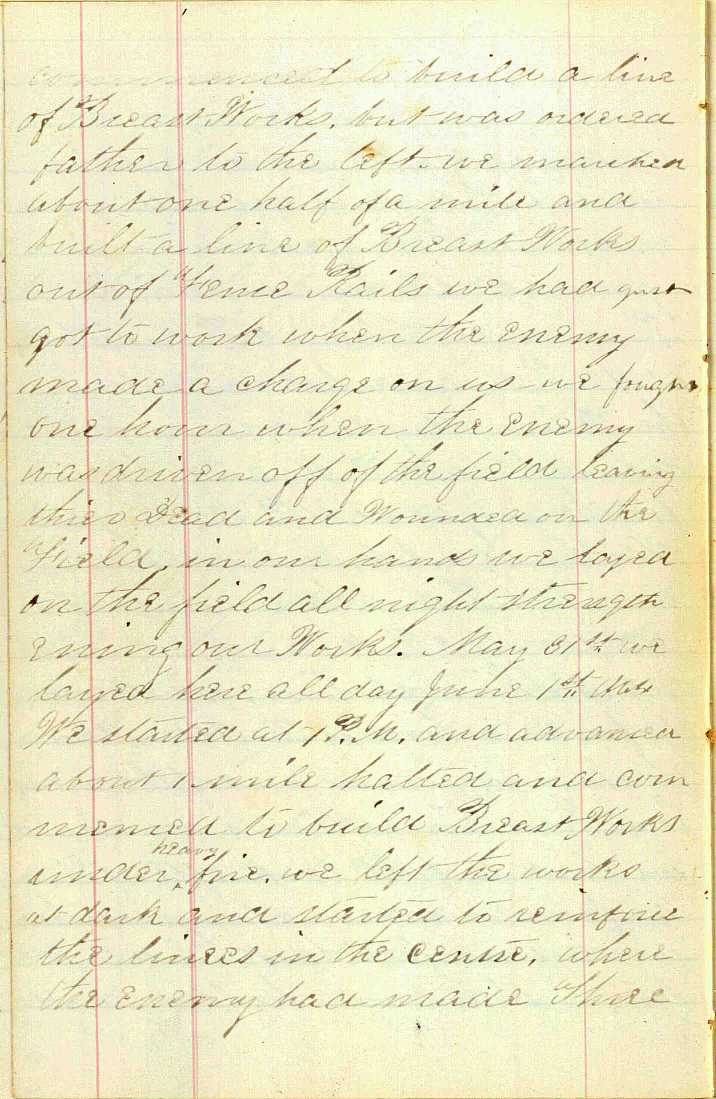 commenced to build a line
of Breast Works. but was ordered
father to the left. we marched
about one half of a mile and
built a line of Breast Works
out of Fence Rails we had just
got to work when the enemy
made a charge on us we fought
one hour when the enemy
was driven off of the field leaving
thier Dead and Wounded on the
Field, in our hands we layed
on the field all night strength
ening our Works. May 31st. we
layed here all day June 1st.
We started at 1 P.M. and advanced
about 1 mile halted and com
menced to build Breast Works
under heavy fire. we left the works
at dark and started to reinforce
the linees in the centre, where
the enemy had made Three